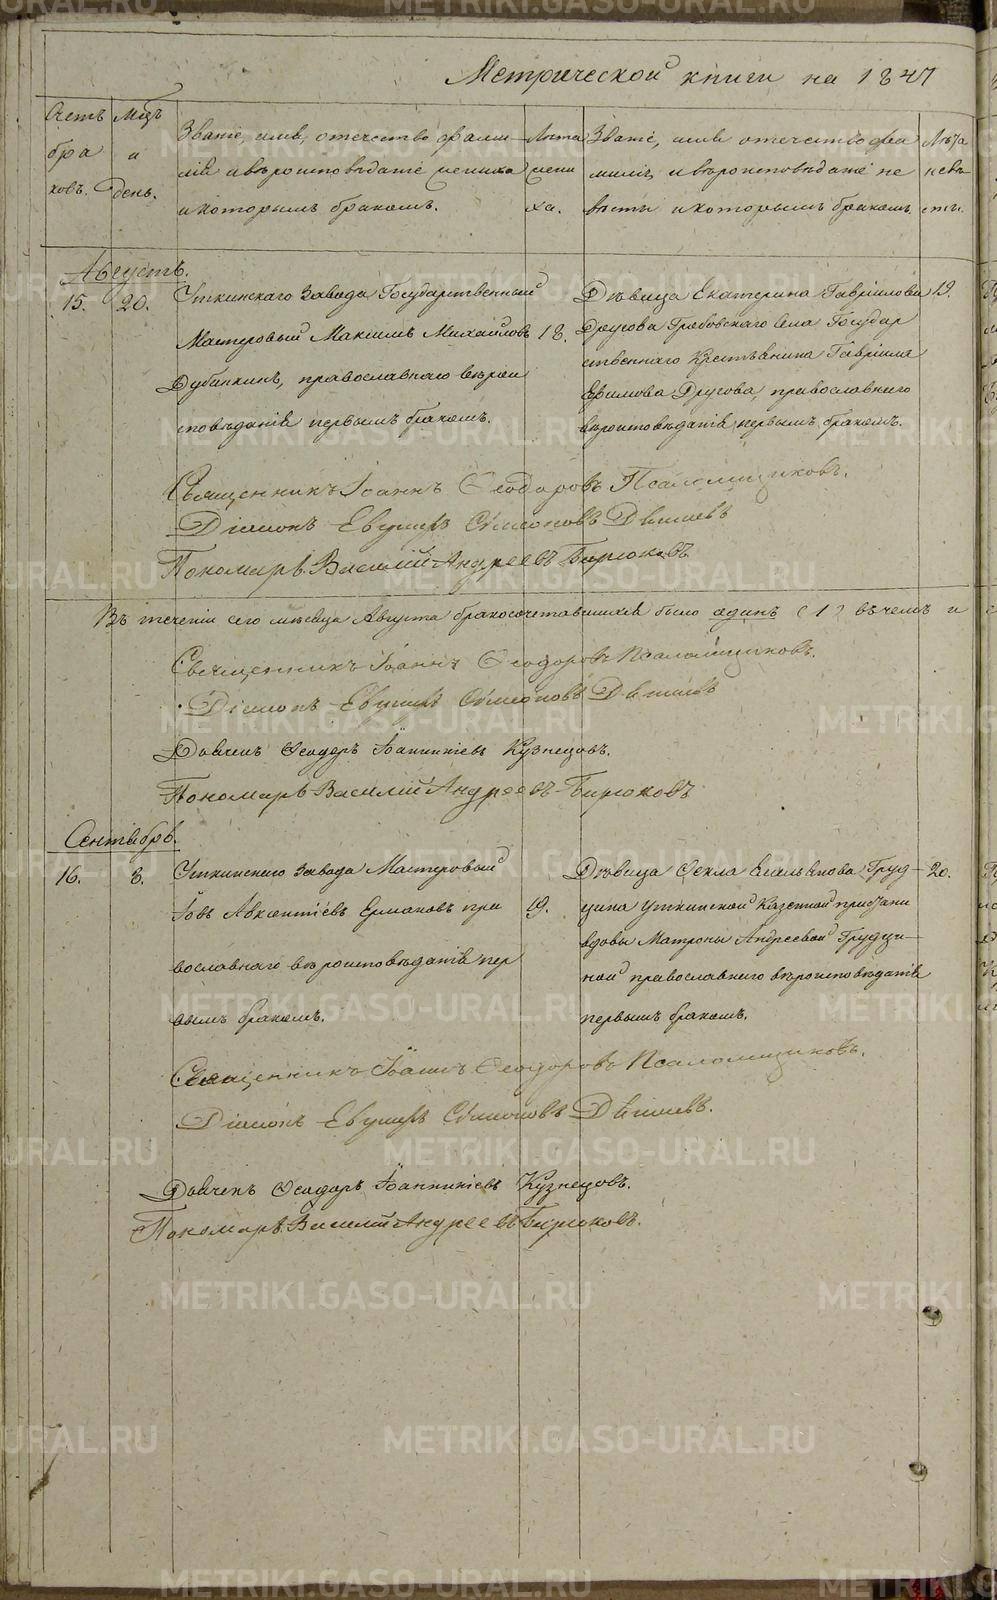 Метрической книги на 1847
Счетъ бра ковъ.
Мѣцъ и день.
Званіе, имя, отечество фами
лія и вѣроисповѣданіе жениха
и которымъ бракомъ.
Лѣта жени ха.
Званіе, имя отечество фа
милія, и вѣроисповѣданіе не
вѣсты и которымъ бракомъ
Лѣта невѣ сты.
Августъ.
15. 20. Уткинскаго Завода Государственный
Мастеровый Максимъ Михайловъ 18.
Дубинкинъ, православнаго вѣрои
сповѣданія первымъ бракомъ.
Дѣвица Екатерина Гавріилова 19.
Другова Гробовскаго села Государ
ственнаго Крестьянина Гавріила
Ефимова Другова, православнаго
вѣроисповѣданія первымъ бракомъ.
Священникъ Іоаннъ Ѳеодоровъ Псаломщиковъ.
Діаконъ Евѳимъ Сѵмеоновъ
Пономарь Василій Андреевъ Бирюковъ
Въ теченіи сего мѣсяца Августа бракосочетавшихся было одинъ (1) въ чемъ и
Священникъ Іоаннъ Ѳеодоровъ Псаломщиковъ.
Діаконъ Евѳимъ Сѵмеоновъ
Дьячекъ Ѳеодоръ Іоанникіевъ Кузнецовъ.
Пономарь Василій Андреевъ Бирюковъ
Сентябрь.
16. 8. Уткинскаго Завода Мастеровый
Іовъ Авксентіевъ Ермаковъ пра 19.
вославнаго вѣроисповѣданія пер
вымъ бракомъ.
Дѣвица Ѳекла Емельянова Груд 20.
цина Уткинской Казенной пристани
вдовы Матроны Андреевой Грудци
ной православнаго вѣроисповѣданія
первымъ бракомъ.
Священникъ Іоаннъ Ѳеодоровъ Псаломщиковъ.
Діаконъ Евѳимъ Сѵмеоновъ
Дьячекъ Ѳеодоръ Іоанникіевъ Кузнецовъ.
Пономарь Василій Андреевъ Бирюковъ.
METRIKI.GASO-URAL.RU